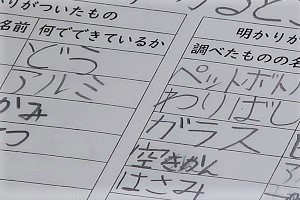 かりがついたもの
名前 何でできているか
どう
アルミ
かみ
つ
明かりが
調べたものの名
ペットボト
わりばし
ガラス
空きかん
はさみ